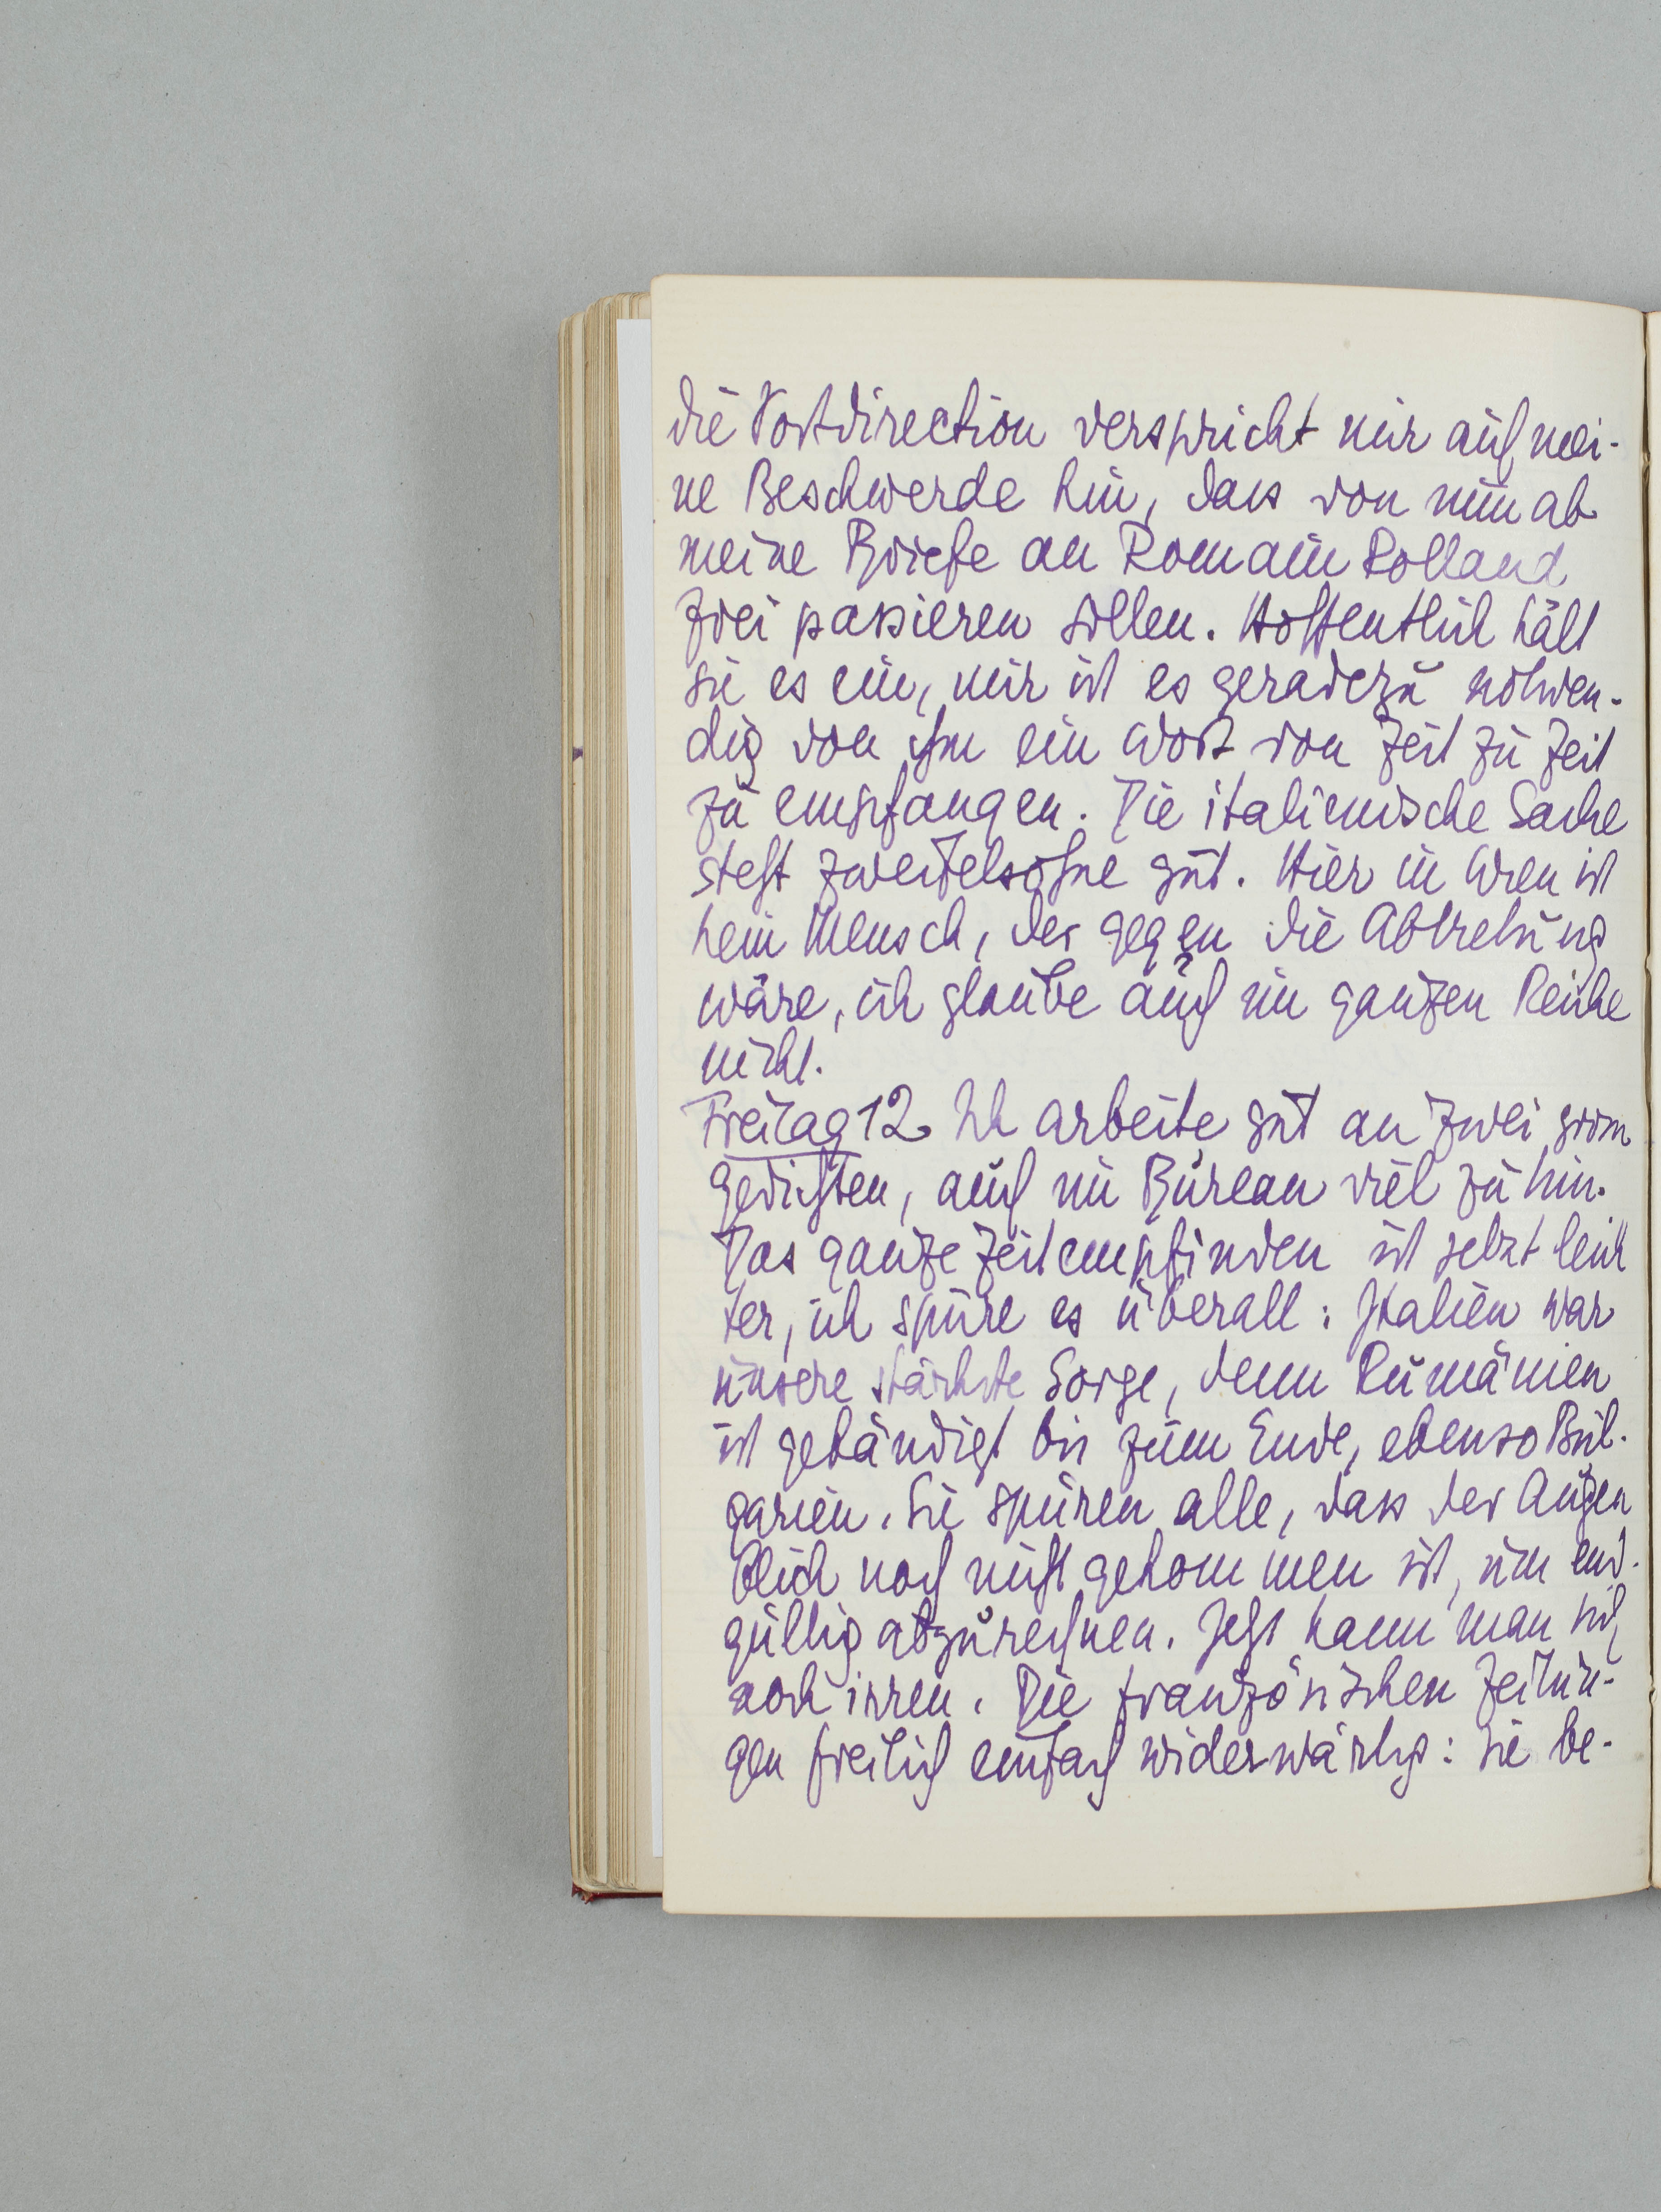 die Postdirection verspricht mir auf mei-
ne Beschwerde hin, dass von nun ab
meine Briefe an Romain Rolland
frei passieren sollen. Hoffentlich hält
sie es ein, mir ist es geradezu nohwen-
dig von ihm ein Wort von Zeit zu Zeit
zu empfangen. Die italienische Sache
steht zweifelsohne gut. Hier in Wien ist
kein Mensch, der gegen die Abtretung
wäre, ich glaube auch im ganzen Reiche
nicht.
Freitag 12 Ich arbeite gut an zwei
gedichten, auch im Bureau viel zu thun.
Das ganze Zeitempfinden ist jetzt leich
ter, ich spüre es überall: Italien war
unsere stärkste Sorge, denn Rumänien
ist gebändigt bis zum Ende, ebenso Bul-
garien. Sie spüren alle, dass der Augen
blick noch nicht gekommen ist, um end-
gültig abzurechnen. Jetzt kann man sich
noch irren. Die französischen Zeitun-
gen freilich einfach widerwärtig: sie be-